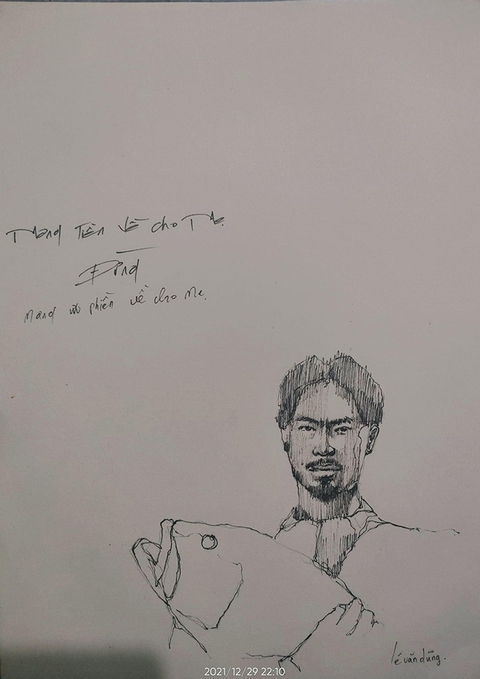 Mang Tiền Về cho Mẹ.
Đừng
mang ưu phiền về cho mẹ.
lê văn dũng.
2021/12/29 22:10